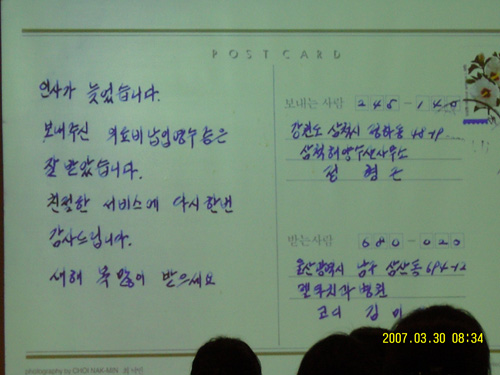 POSTCARD
인사가 늦었습니다.
보내주신 의료비납입영수증은
잘 받았습니다.
친절한 서비스에 다시 한번
감사드립니다.
새해 복 많이 받으세요
보내는 사람 245-140
강원도 삼척시 48-19
삼척해양수산사무소
정 형
받는사람 680-020
울산광역시 남구 삼산동 694-12
치과병원
코디 김 미
photography by CHOI NAK-MIN
2007.03.30 08:34